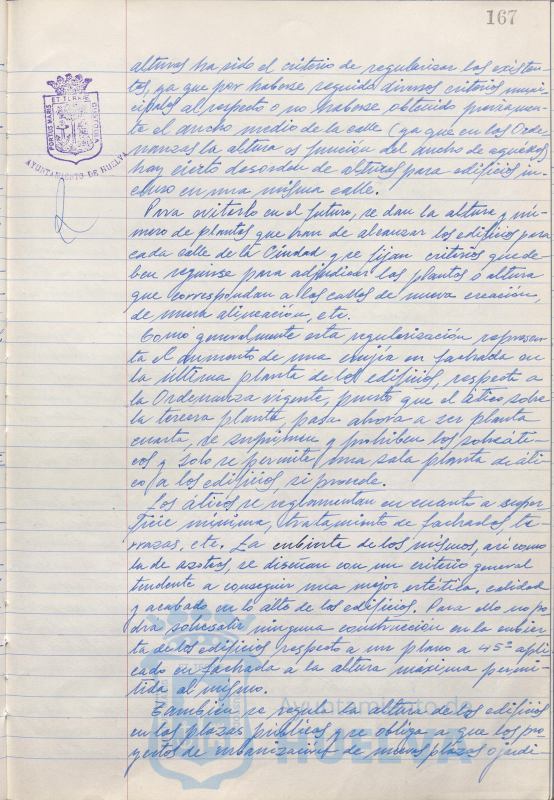 167
PORTUS MARIS
ET TERRAE
CUSTODIA
AYUNTAMIENTO DE HUELVA
alturas ha sido el criterio de regularizar las existen-
tes, ya que por haberse seguido diversos criterios muni-
cipales al respecto o no haberse obtenido previamen-
te el ancho medio de la calle (ya que en las Orde-
nanzas la altura es función del ancho de aquéllas
hay cierto desorden de alturas para edificios in-
cluso en una misma calle.
Para evitarlo en el futuro, se dan la altura y nú-
mero de plantas que han de alcanzar los edificios para
cada calle de la Ciudad y se fijan criterios que de-
ben seguirse para adjudicar las plantas o altura
que correspondan a las calles de nueva creación,
de nueva alineación, etc.
Como generalmente esta regularización represen-
ta el aumento de una crujía en fachada en
la última planta de los edificios, respecto a
la Ordenanza vigente, puesto que el ático sobre
la tercera planta, pasa ahora a ser planta
cuarta, se suprimen y prohiben los sobreáti-
cos y solo se permite una sola planta de áti-
co a los edificios, si procede.
Los áticos se reglamentan en cuanto a super-
ficie mínima, tratamiento de fachadas, te-
rrazas, etc. La cubierta de los mismos, así como
la de azoteas, se diseñan con un criterio general
tendente a conseguir una mejor estética, calidad
y acabado en lo alto de los edificios. Para ello no po-
drá sobresalir ninguna construcción en la cubier-
ta de los edificios respecto a un plano a 45º apli-
cado en fachada a la altura máxima permi-
tida al mismo.
También se regula la altura de los edificios
en las plazas públicas y se obliga a que los pro-
yectos de urbanización de nuevas plazas o jardi-
Ayuntamiento de
HUELVA